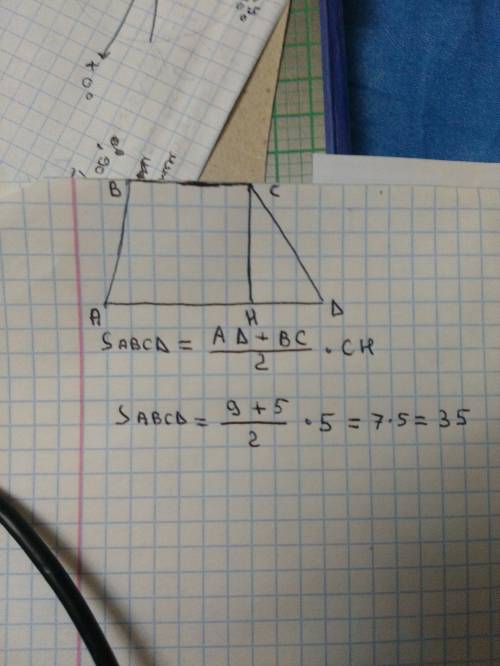 B C
A H D
S ABCD = AD + BC / 2 · CH
S ABCD = 9 + 5 / 2 · 5 = 7 · 5 = 35